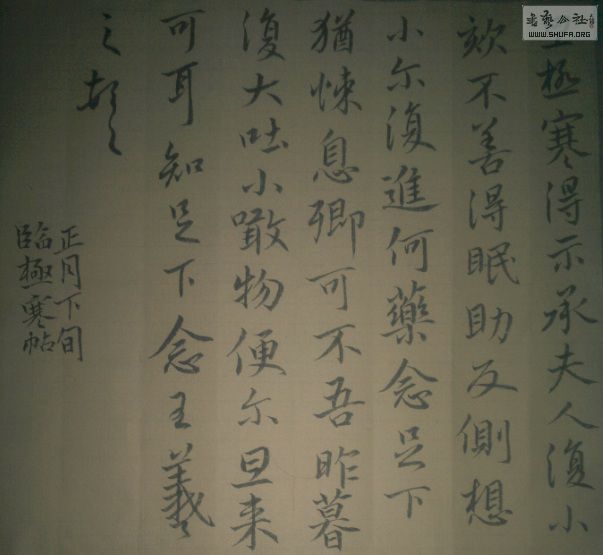 極寒得示承夫人復小
欬不善得眠助反側想
小尔復進何藥念足下
猶悚息卿可不吾昨暮
復大吐小噉物便尔旦来
可耳知足下念王羲
之頓
正月下旬
臨極寒帖
書藝公社
WWW.SHUFA.ORG